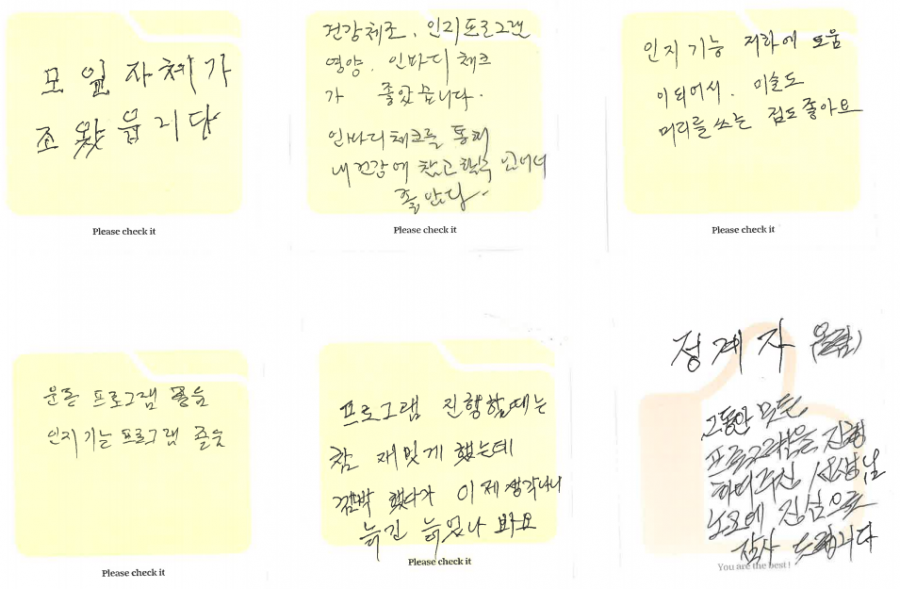 모 일 자체가
조 왔 읍 니 다
Please check it
건강체조, 인지프로그램
영양. 인바디 체크
가 좋았읍니다.
인바디체크를 통해
내 건강에 참고
좋았다.
Please check it
인지 기능 저하에 도움
이되어서. 미술도
머리를쓰는 점도좋아요
Please check it
운동 프로그램 좋음
인지기능프로그램 좋음
Please check it
프로그램 진행할때는
참 재밌게 했는데
깜박 했다가 이제생각나니
늙긴 늙었나 봐요
Please check it
정계자
그동안 모든
프로그램을 진행
하여주신 선생님
노고에 진심으로
감사 드립니다
You are the best!